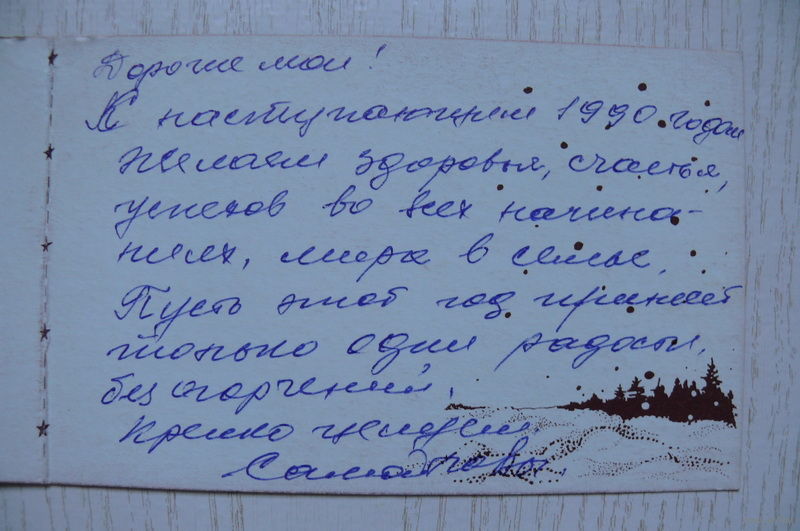 Дорогие мои!
К наступающим 1990 годом
желаем здоровья, счастья,
успехов во всех начина-
ниях, мира в семье.
Пусть этот год принесет
только одни радости,
без огорчений.
Крепко целуем